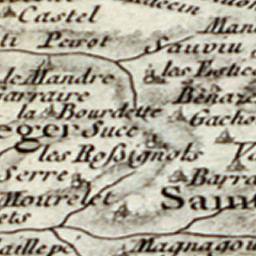 Castel
Perrot
Sauviu
le Mandre
les
garraire
la Bourdette
Gacho
eger Suce
les Roßignols
Serre
Barra
Mourelet
Saint
ets
aillepé
Magnagou